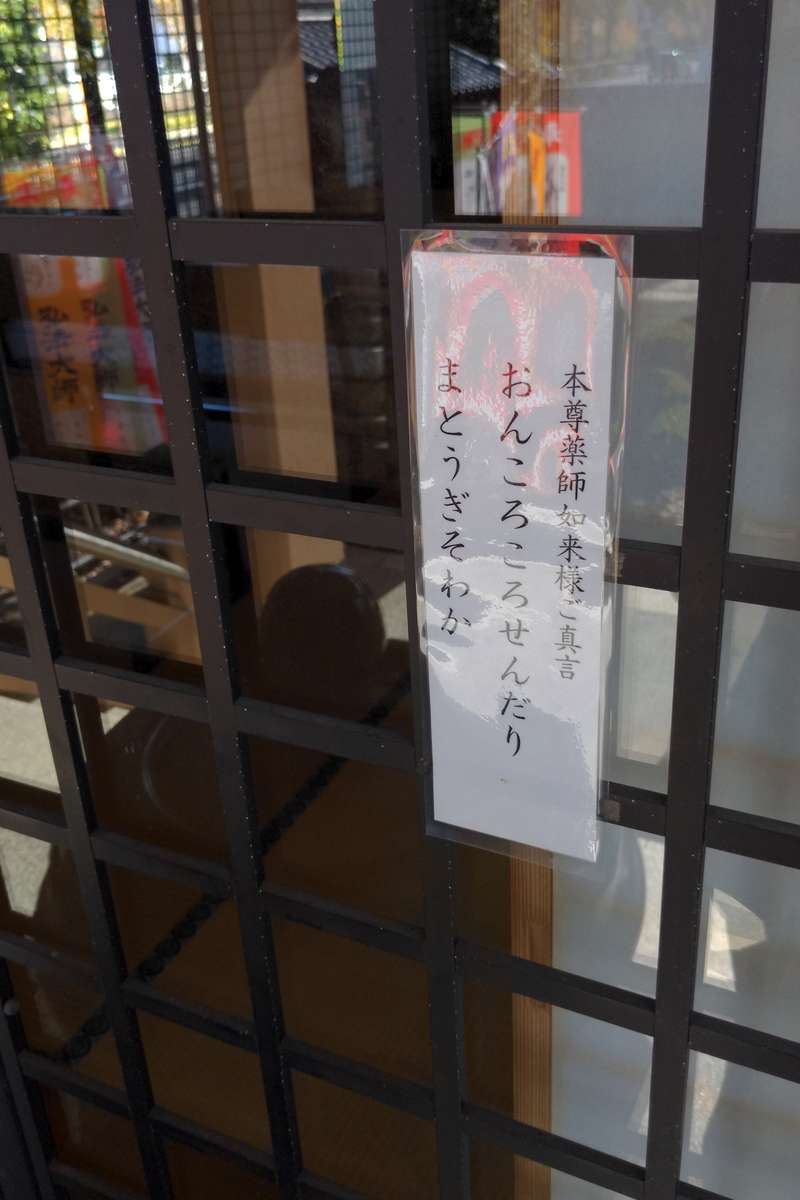 本尊薬師如来様ご真言
おんころころせんだり
まとうぎそわか
弘法大師